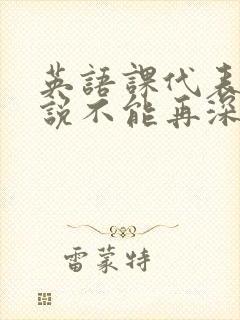 英語課代表
說不能再深
雷蒙特